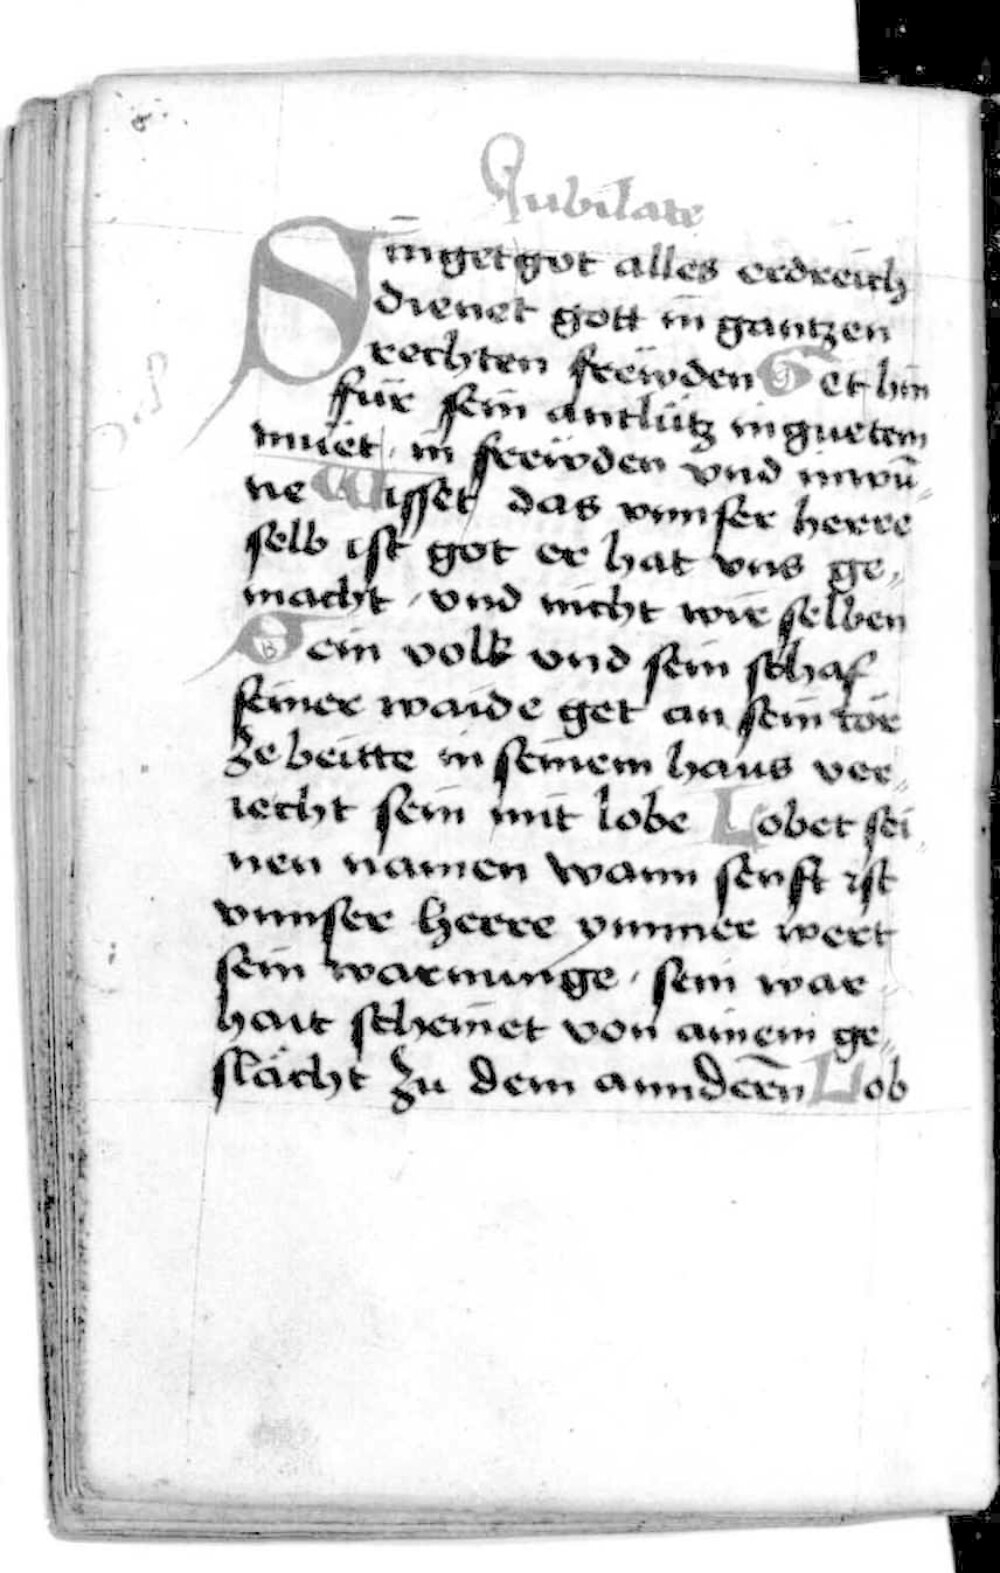 Jubilate
Singet got alles erdreich
dienet gott in gantzen
rechten freẅden Get hin
für sein antlütz in guetem
muͤet / in freẅden vnd in wū„
ne Wisset das vnnser herre
selb ist got er hat vns ge„
macht / vnd nicht wir selben
Sein volk vnd sein schaf
seiner waide get an sein tör
ze beitte in seinem haus ver„
iecht sein mit lobe Lobet sei„
nen namen wann senft ist
vnnser herre ymmer wert
sein warnunge / sein war„
hait scheinet von ainem ge„
slächt zu dem annderñ Lob